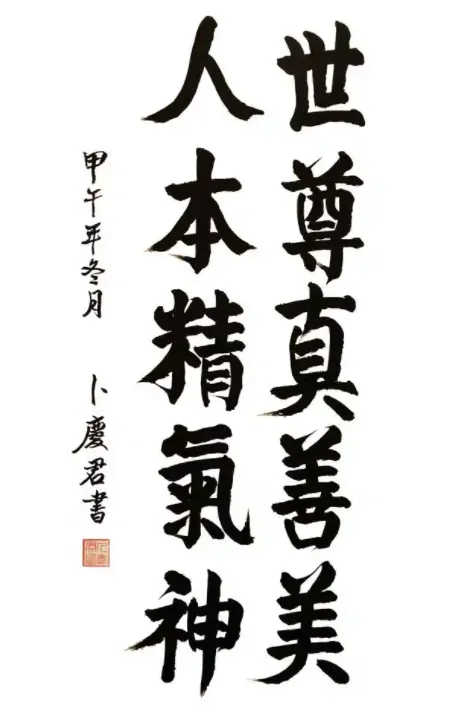 世尊真善美
人本精氣神
甲午年冬月 卜慶君書